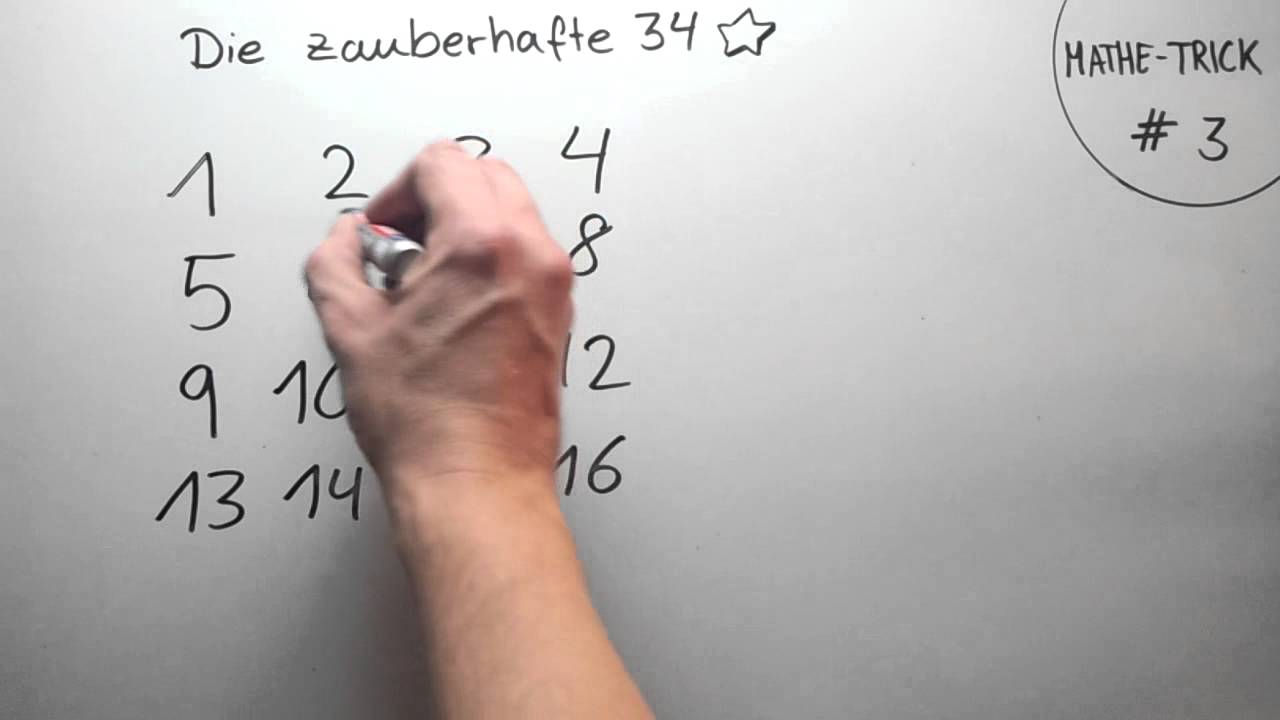 Die zauberhafte 34
MATHE-TRICK
# 3
1 2 3 4
5 8
9 10 12
13 14 16